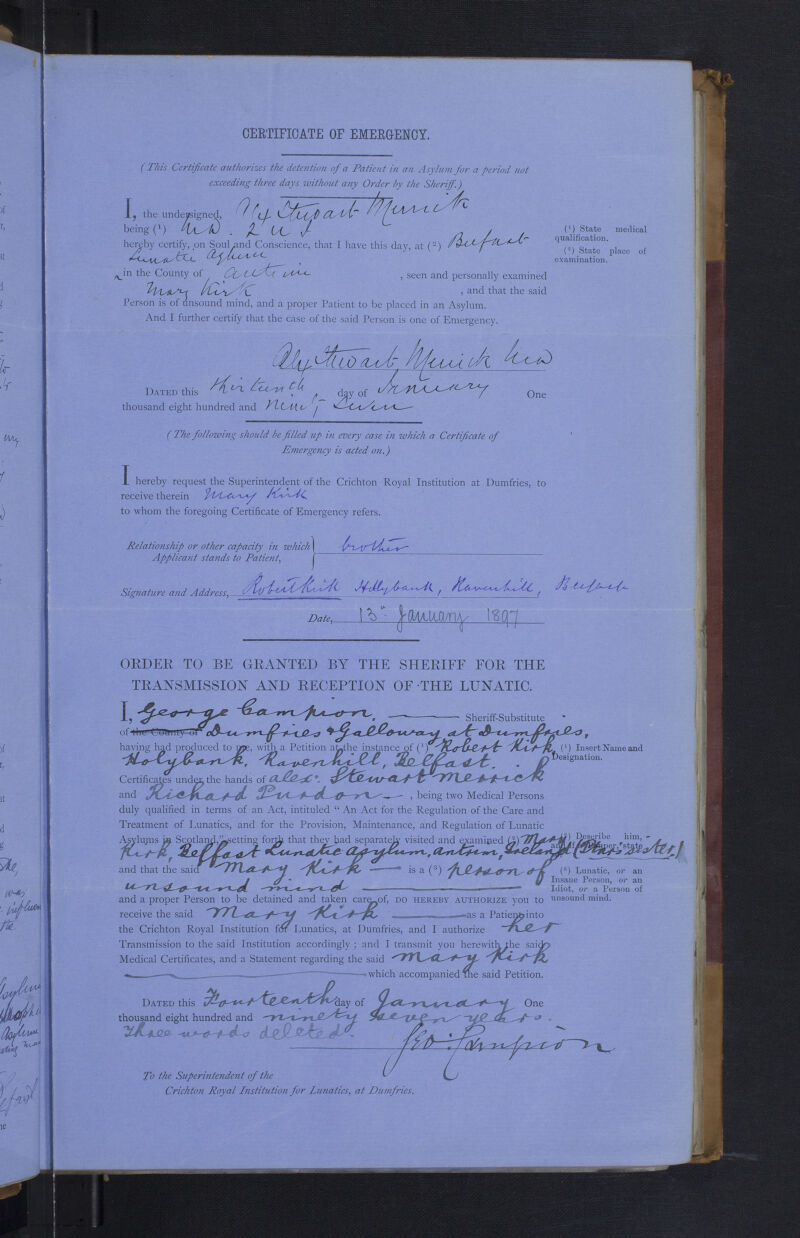 CERTIFICATE OF EMERGENCY.
(This Certificate authorizes the detention of a Patient in an Asylum for a period not
exceeding three days without any Order by the Sheriff.)
I, the undersigned, Alex Stewart Merrick
being (¹) M.D.
hereby certify, on Soul and Conscience, that I have this day, at (²) Belfast
Lunatic Asylum
in the County of Antrim , seen and personally examined
Mary Kirk , and that the said
Person is of unsound mind, and a proper Patient to be placed in an Asylum.
And I further certify that the case of the said Person is one of Emergency.
(¹) State medical
qualification.
(²) State place of
examination.
Alex Stewart Merrick MD
DATED this thirteenth day of January One
thousand eight hundred and Ninety Seven
(The following should be filled up in every case in which a Certificate of
Emergency is acted on.)
I hereby request the Superintendent of the Crichton Royal Institution at Dumfries, to
receive therein Mary Kirk
to whom the foregoing Certificate of Emergency refers.
Relationship or other capacity in which
Applicant stands to Patient, brother
Signature and Address, Robert Kirk Hollybank, Ravenhill, Belfast
Date, 13th January 1897
ORDER TO BE GRANTED BY THE SHERIFF FOR THE
TRANSMISSION AND RECEPTION OF THE LUNATIC.
I, George Campion, Sheriff-Substitute
of the County of Dumfries & Galloway at Dumfries,
having had produced to me, with a Petition at the instance of (¹) Robert Kirk,
Holybank, Ravenhill, Belfast.
Certificates under the hands of Alexr. Stewart Merrick
and Richard Purdon , being two Medical Persons
duly qualified in terms of an Act, intituled "An Act for the Regulation of the Care and
Treatment of Lunatics, and for the Provision, Maintenance, and Regulation of Lunatic
Asylums in Scotland," setting forth that they had separately visited and examined (²) Mary
Kirk, Belfast Lunatic Asylum, Antrim, Ireland (Petrs sister)
and that the said Mary Kirk is a (³) person of
unsound mind
and a proper Person to be detained and taken care of, DO HEREBY AUTHORIZE you to
receive the said Mary Kirk as a Patient into
the Crichton Royal Institution for Lunatics, at Dumfries, and I authorize her
Transmission to the said Institution accordingly ; and I transmit you herewith the said
Medical Certificates, and a Statement regarding the said Mary Kirk
which accompanied the said Petition.
(¹) Insert Name and
Designation.
(²) Describe him,
state
(³) Lunatic, or an
Insane Person, or an
Idiot, or a Person of
unsound mind.
DATED this Fourteenth day of January One
thousand eight hundred and ninety seven years.
Three words deleted.
Geo: Campion
To the Superintendent of the
Crichton Royal Institution for Lunatics, at Dumfries.